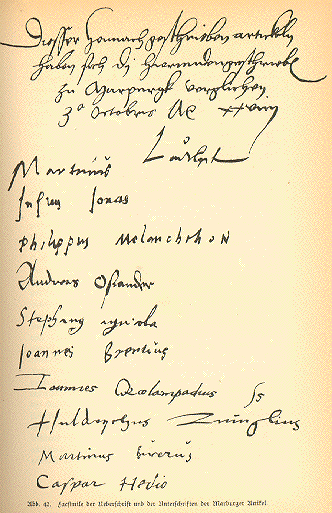 Diesser hernach geschrieben artickeln
haben sich die hierunden geschriebne
zu Marpurgk verglichen
3ª octobris
Martinus Luther
Justus Jonas
Philippus Melanchthon
Andreas Osiander
Stephanus Agricola
Joannes Brentius
Ioannes Oecolampadius ss
Huldrychus Zuinglius
Martinus Bucerus
Caspar Hedio
Abb. 42. Facsimile der Ueberschrift und der Unterschriften der Marburger Artikel.